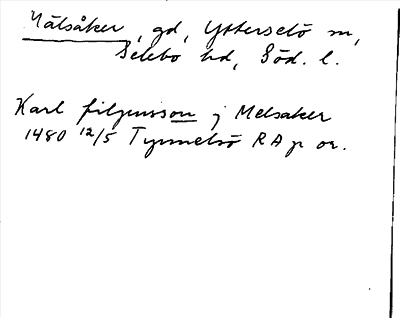 Mälsåker, gd, Ytterselö sn,
Selebo hd, Söd. l.
Karl filpusson j Melsaker
1480 12/5 Tynnelsö RA p or.